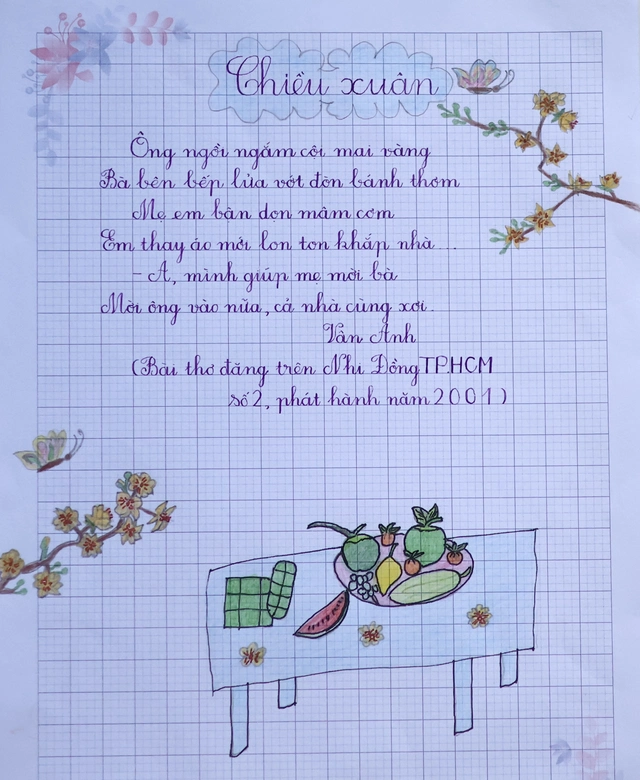 Chiều xuân
Ông ngồi ngắm cội mai vàng
Bà bên bếp lửa vớt đòn bánh thơm
Mẹ em bận dọn mâm cơm
Em thay áo mới lon ton khắp nhà...
- A, mình giúp mẹ mời bà
Mời ông vào nữa, cả nhà cùng xơi.
Vân Anh
(Bài thơ đăng trên Nhi Đồng TP.HCM
số 2, phát hành năm 2001)